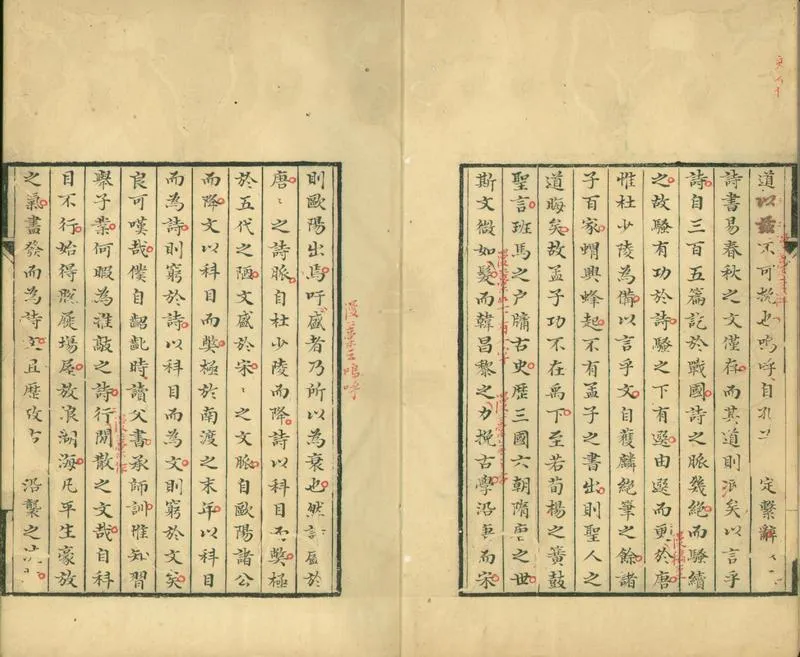 道以 不可挽也嗚呼自孔 定繫辭
詩書易春秋之文僅存而其道則 矣以言乎
詩自三百五篇訖於戰國詩之脈幾絕而騷續
之故騷有功於詩騷之下有選由選而更於唐
惟杜少陵為備以言乎文自獲麟絕筆之餘諸
子百家蝟興蜂起不有孟子之書出則聖人之
道晦矣故孟子功不在禹下至若荀楊之簧鼓
聖言班馬之户牖古史歷三國六朝隋唐之世
斯文微如髮而韓昌黎之力挽古學沿 而宋
則歐陽出焉吁盛者乃所以為衰也然詩盛於
唐〻之詩脈自杜少陵而降詩以科目而獘極
於五代之陋文盛於宋〻之文脈自歐陽諸公
而降文以科目而獘極於南渡之末年以科目
而為詩則窮於詩以科目而為文則窮於文矣
良可嘆哉僕自齠齔時讀父書承師訓惟知習
舉子業何暇為推敲之詩行閒散之文哉自科
目不行始得脫屣場屋放浪湖海凡平生豪放
之氣盡發而為詩 且歷攷 沿襲之
漫藁三嗚呼